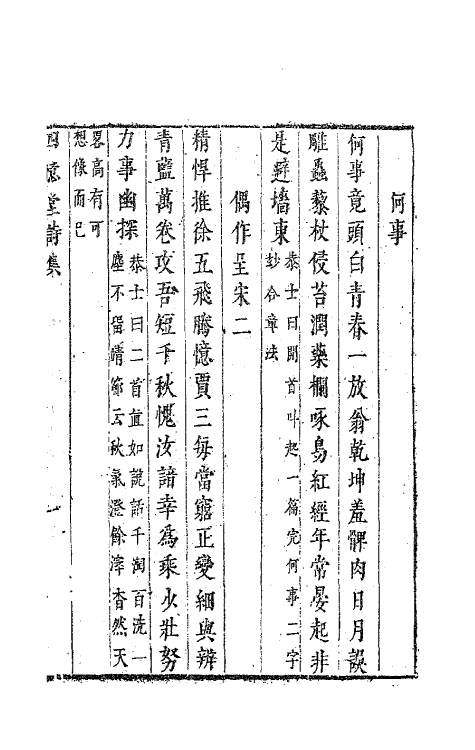 何事
何事竟頭白青春一放翁乾坤羞髀肉日月誤
雕蟲藜杖侵苔潤藥欄啄鳥紅經年常晏起非
是避墻東恭士曰開首叫起一篇完何事二字
妙合章法
偶作呈宋二
精悍推徐五飛騰憶賈三每當窮正變細與辨
青藍萬卷攻吾短千秋愧汝諳幸為乘少壯努
力事幽探恭士曰二首直如說話千淘百洗一
塵不留靖節云秋氣澄餘滓杳然天
界高有可
想像而已
四憶堂詩集